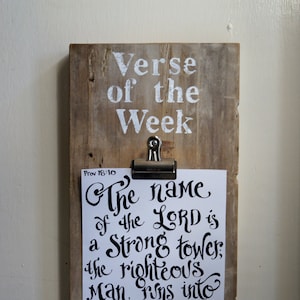 Verse
of the
Week
Prov 18:10
The name
of the LORD is
a Strong tower;
the righteous
Man runs into